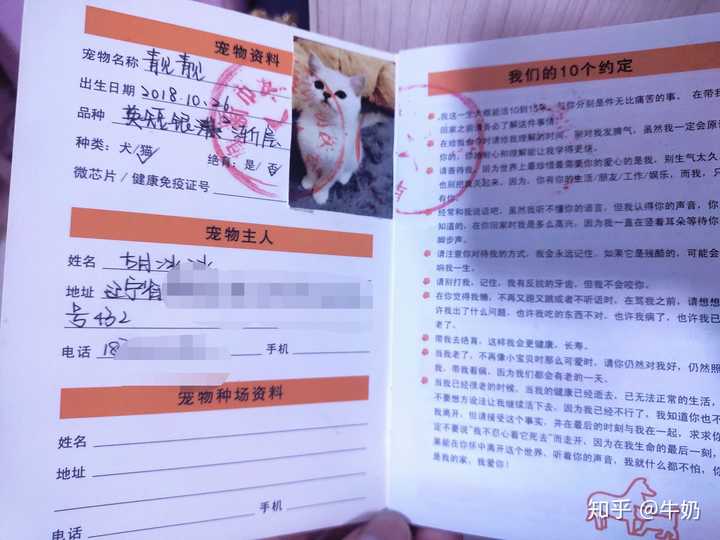 宠物资料
宠物名称 靓靓
出生日期 2018.10.26
品种 英短银渐渐层
种类：犬/猫 绝育：是/否
微芯片/健康免疫证号
宠物主人
姓名
地址 辽宁省
号432
电话 18 手机
宠物种场资料
姓名
地址
手机
电话
我们的10个约定
我这一生大概能活10到15年，与你分别是件无比痛苦的事。在带我
回家之前请务必了解这件事情！
在给我命令时请给我理解的时间，别对我发脾气，虽然我一定会原谅
你的，你的耐心和理解能让我学得更快。
请善待我，因为世界上最珍惜最需要你的爱心的是我，别生气太久，
也别把我关起来，因为，你有你的生活/朋友/工作/娱乐，而我，只
有你。
经常和我说话吧，虽然我听不懂你的语言，但我认得你的声音，你
知道的，在你回家时我是多么高兴，因为我一直在竖着耳朵等待你
脚步声。
请注意你对待我的方式，我会永远记住，如果它是残酷的，可能会
响我一生。
请别打我，记住，我有反抗的牙齿，但我不会咬你。
在你觉得我懒，不再又跑又跳或者不听话时，在骂我之前，请想想
许我出了什么问题，也许我吃的东西不对，也许我病了，也许我已
老了。
带我去绝育，这样我会更健康、长寿。
当我老了，不再像小宝贝时那么可爱时，请你仍然对我好，仍然照
我，带我看病，因为我们都会有老的一天。
当我已经很老的时候，当我的健康已经逝去，已无法正常的生活，
不要想方设法让我继续活下去，因为我已经不行了，我知道你也不
我离开，但请接受这个事实，并在最后的时刻与我在一起，求求你
定不要说"我不忍心看它死去"而走开，因为在我生命的最后一刻，
果能在你怀中离开这个世界，听着你的声音，我就什么都不怕，你
是我的家，我爱你！
知乎 @牛奶